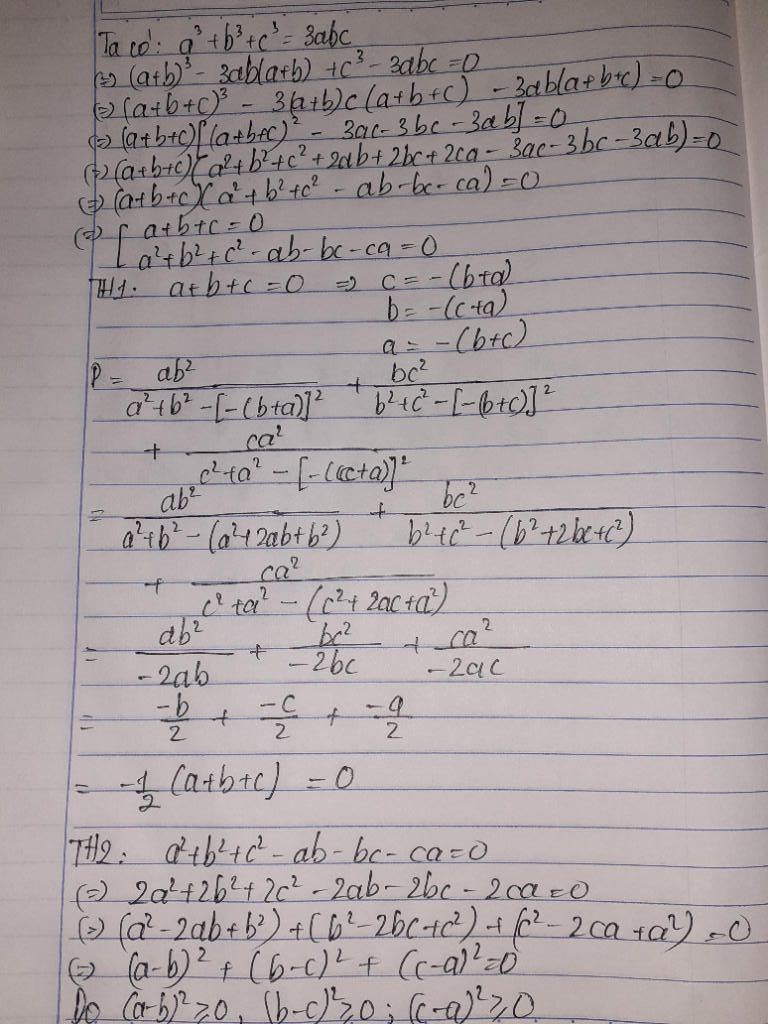 Ta có: a³+b³+c³=3abc
(=) (a+b)³ - 3ab(a+b) +c³ - 3abc =0
(=) (a+b+c)³ - 3(a+b)c(a+b+c) - 3ab(a+b+c)=0
(=) (a+b+c)[(a+b+c)² - 3ac-3bc-3ab]=0
(=) (a+b+c)(a²+b²+c²+2ab+2bc+2ca-3ac-3bc-3ab)=0
(=) (a+b+c)(a²+b²+c² -ab-bc-ca)=0
(=) [ a+b+c=0
a²+b²+c²-ab-bc-ca=0
TH1: a+b+c=0 => c=-(b+a)
b=-(c+a)
a=-(b+c)
P= ab²/(a²+b²-[-(b+a)]²) + bc²/(b²+c²-[-(b+c)]²)
+ ca²/(c²+a²-[-(c+a)]²)
= ab²/(a²+b²-(a²+2ab+b²)) + bc²/(b²+c²-(b²+2bc+c²))
+ ca²/(c²+a²-(c²+2ac+a²))
= ab²/-2ab + bc²/-2bc + ca²/-2ac
= -b/2 + -c/2 + -a/2
= -1/2 (a+b+c) =0
TH2: a²+b²+c²-ab-bc-ca=0
(=) 2a²+2b²+2c²-2ab-2bc-2ca=0
(=) (a²-2ab+b²)+(b²-2bc+c²)+(c²-2ca+a²)=0
(=) (a-b)²+(b-c)²+(c-a)²=0
Do (a-b)²≥0, (b-c)²≥0; (c-a)²≥0